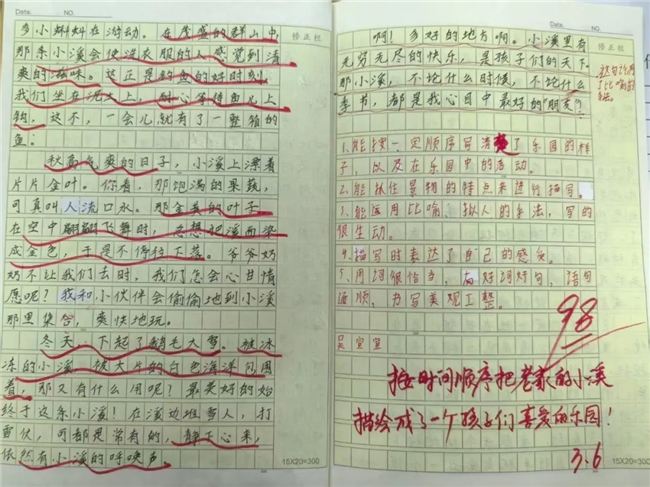 Date. NO.
修正栏
多小蝌蚪在游动。在茂盛的群山中，
那条小溪会使洗衣服的人感觉到清
爽的滋味。这正是钓鱼的好时刻，
我们坐在泥土上，耐心等待鱼儿上
钩，这不，一会儿就有了一整箱的
鱼。
秋高气爽的日子，小溪上漂着
片片金叶。你看，那饱满的果蔬，
可真叫人流口水。那金黄的叶子
在空中翩翩飞舞时，总想把溪面染
成金色，于是不停往下落。爷爷奶
奶不让我们去时，我们怎会心甘情
愿呢？我和小伙伴会偷偷地到小溪
那里集合，爽快地玩。
冬天，下起了鹅毛大雪。被冰
冻的小溪被大片的白色海洋包围
着，那又有什么用呢？最美好的始
终于这条小溪！在溪边堆雪人，打
雪仗，可都是常有的，静下心来，
依然有小溪的呼唤声。
15X20=300
Date. NO.
修正栏
啊！多好的地方啊。小溪里有
无穷无尽的快乐，是孩子们的天下。
那小溪，不论什么时候，不论什么
季节，都是我心目中最好的“朋友”！
1.能按一定顺序写清楚了乐园的样
子，以及在乐园中的活动。
2.能抓住景物的特点来进行描写。
3.能运用比喻、拟人的手法，写的
很生动。
4.描写时表达了自己的感受。
5.用词很恰当，有好词好句，语句
通顺，书写美观工整。
98
按时间顺序把老家的小溪
描绘成了一个孩子们喜爱的乐园！
3.6
15X20=300